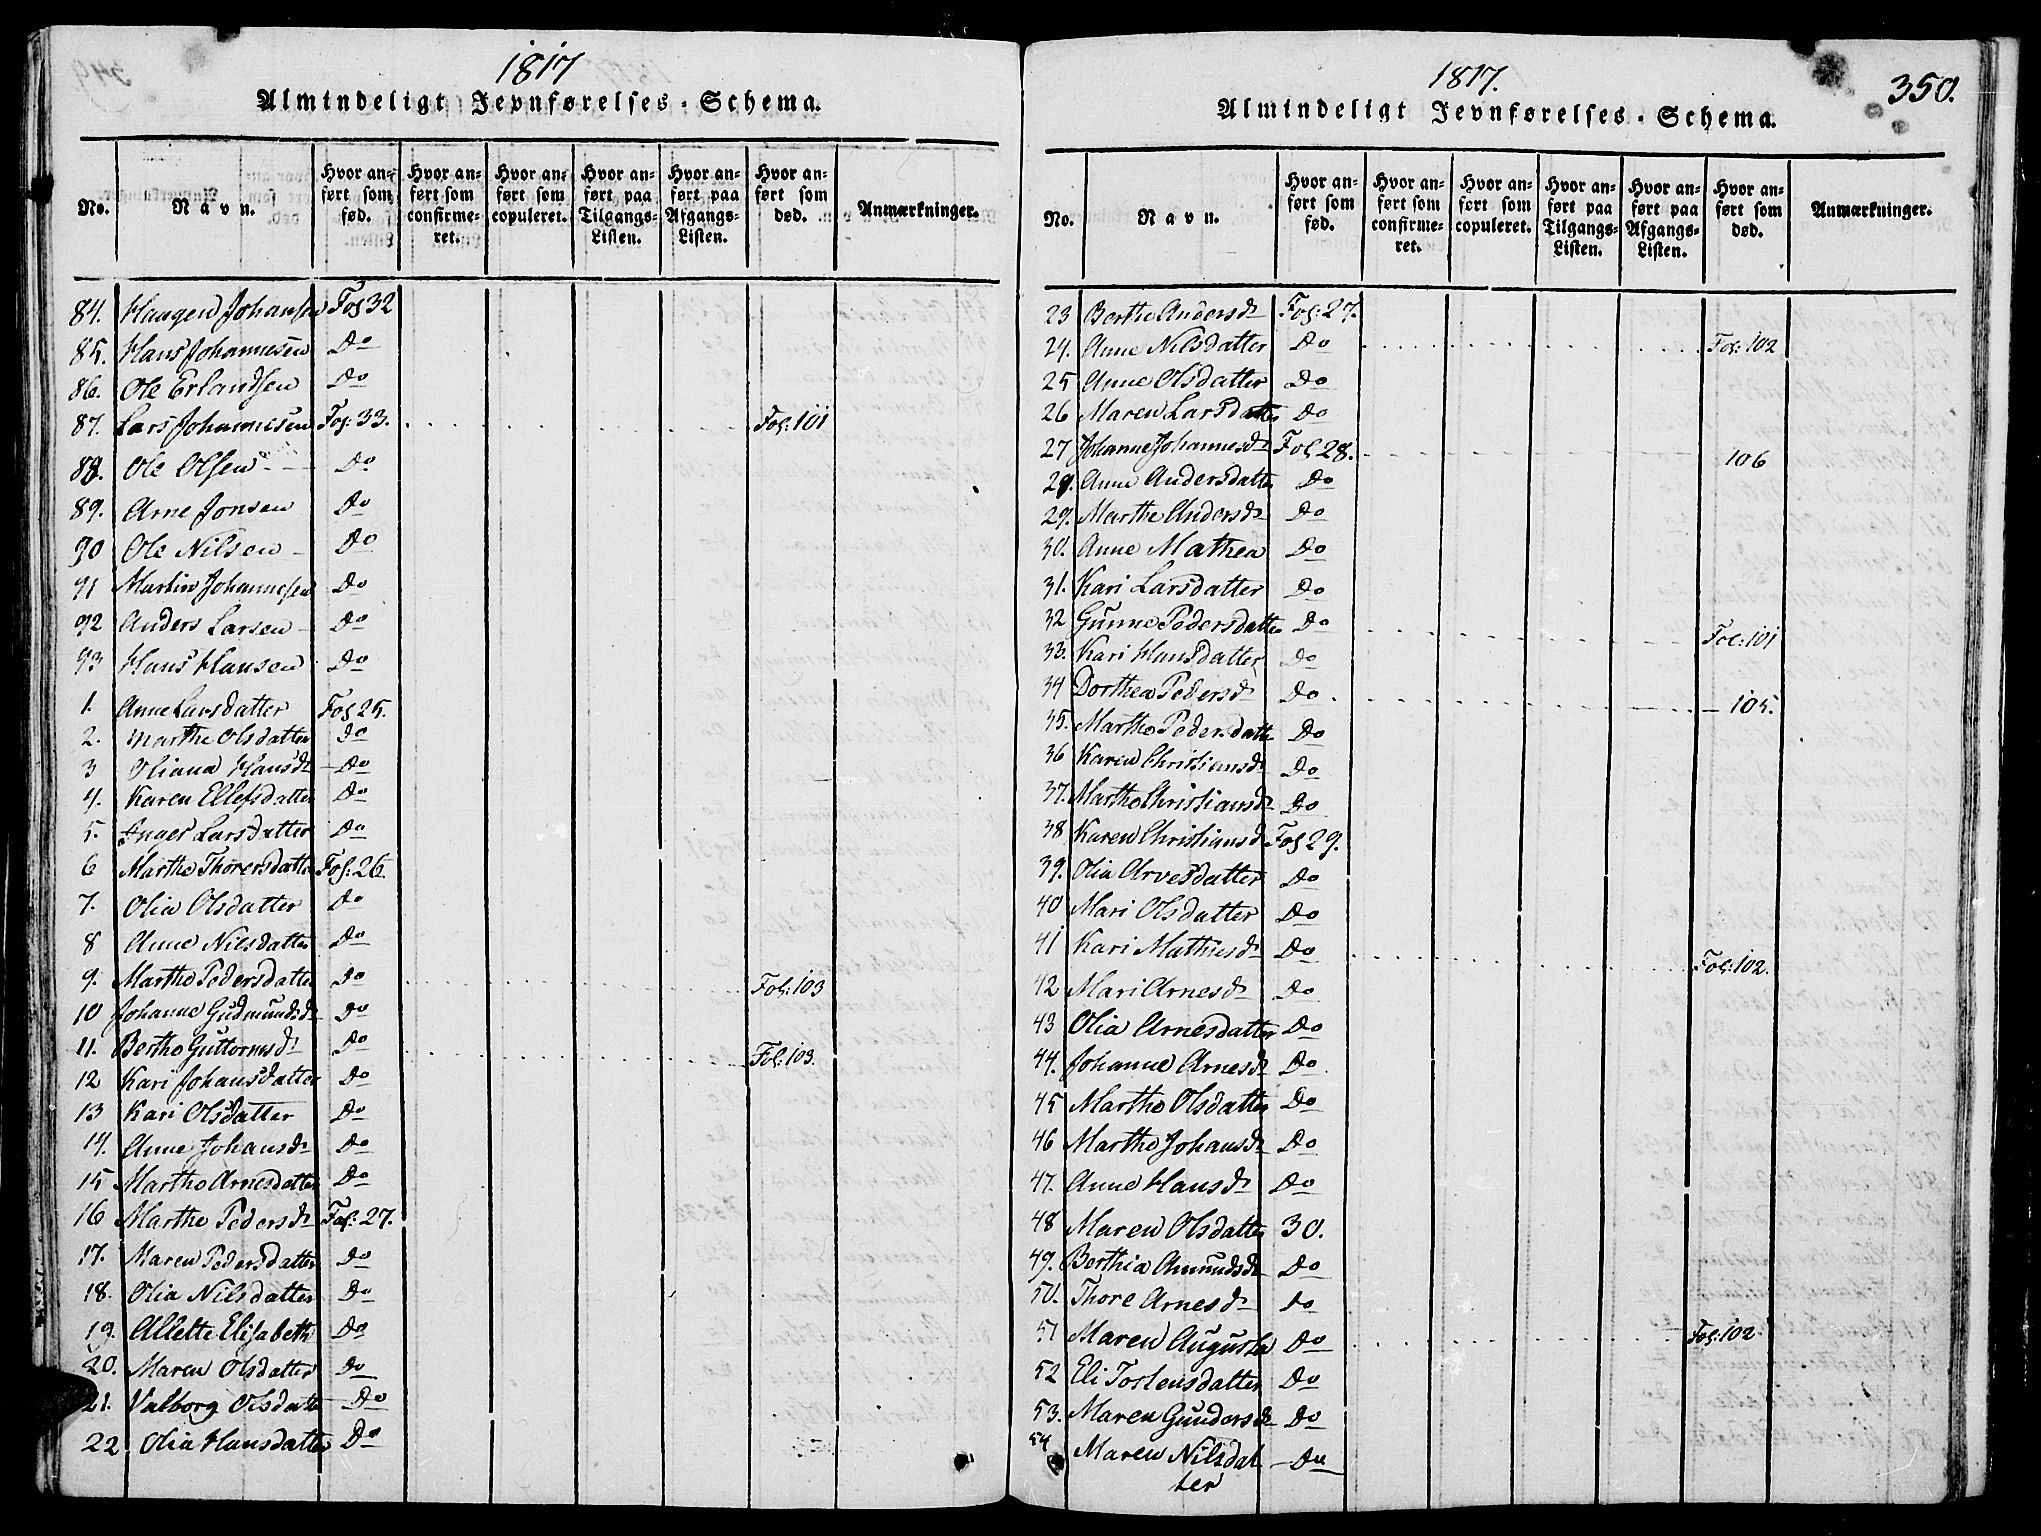 1817
Almindeligt Jevnførelses-Schema.
No. Navn. Hvor anført som fød. Hvor anført som confirmeret. Hvor anført som copuleret. Hvor anført paa Tilgangs-Listen. Hvor anført paa Afgangs-Listen. Hvor anført som død. Anmærkninger.
84. Haagen Johansen Fol 32
85. Hans Johannesen Do
86. Ole Erlandsen Do
87. Lars Johannesen Fol: 33. Fol: 101
88. Ole Olsen Do
89. Arne Jonsen Do
90 Ole Nilsen Do
91 Martin Johannesen Do
92 Anders Larsen Do
93 Hans Hansen Do
1. Anne Larsdatter Fol 25.
2. Marthe Olsdatter do
3 Oliana Hansdr Do
4. Karen Ellefsdatter Do
5. Inger Larsdatter Do
6 Marthe Thorersdatter Fol: 26.
7. Olia Olsdatter Do
8 Anne Nilsdatter Do
9. Marthe Pedersdatter Do Fol: 103
10 Johanne Gudmundsdr Do
11. Berthe Guttormsdr Do Fol: 103.
12 Kari Johansdatter Do
13 Kari Olsdatter Do
14. Anne Johansdr Do
15 Marthe Arnesdatter Do
16 Marthe Pedersdr Fol: 27.
17. Maren Pedersdatter Do
18. Olia Nilsdatter Do
19. Allette Elisabeth Do
20. Maren Olsdatter Do
21. Valborg Olsdatter Do
22 Olia Hansdatter Do
1817.
350.
Almindeligt Jevnførelses-Schema.
No. Navn. Hvor anført som fød. Hvor anført som confirmeret. Hvor anført som copuleret. Hvor anført paa Tilgangs-Listen. Hvor anført paa Afgangs-Listen. Hvor anført som død. Anmærkninger.
23 Berthe Andersdr Fol: 27.
24. Anne Nilsdatter Do Fol: 102
25 Anne Olsdatter Do
26 Maren Larsdatter Do
27 Johanne Johannesdr Fol 28. 106
28. Anne Andersdatter Do
29. Marthe Andersdr Do
30. Anne Mathea Do
31. Kari Larsdatter Do
32 Gunne Pedersdatter Do Fol: 101
33. Kari Hansdatter Do
34 Dorthea Pedersdr Do 105.
35. Marthe Pedersdatter Do
36 Karen Christiansdr Do
37. Marthe Christiansdr Do
38 Karen Christiansd Fol 29.
39. Olia Arvesdatter Do
40 Mari Olsdatter Do
41 Kari Mathiesdr Do Fol: 102.
42 Mari Arnesdr Do
43 Olia Arnesdatter Do
44. Johanne Arnesdr Do
45 Marthe Olsdatter Do
46 Marthe Johansdr Do
47. Anne Hansdr Do
48 Maren Olsdatter 30.
49. Berthia Amundsdr Do
50. Thore Arnesdr Do
51 Maren Augusta Do Fol: 102
52 Eli Tostensdatter Do
53. Maren Gundersdr Do
54 Maren Nilsdat Do
ter